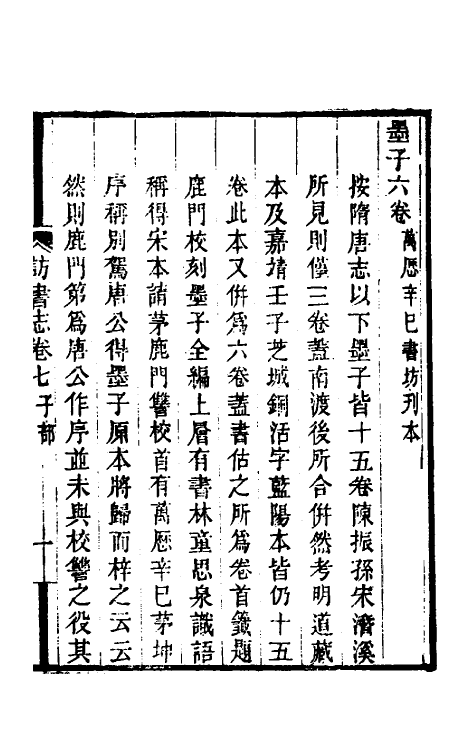 墨子六卷 萬厯辛巳書坊刋本
按隋唐志以下墨子皆十五卷陳振孫宋濳溪
所見則僅三卷蓋南渡後所合倂然考明道藏
本及嘉靖壬子芝城銅活字藍陽本皆仍十五
卷此本又倂爲六卷蓋書估之所爲卷首籤題
鹿門校刻墨子全編上層有書林童思泉識語
稱得宋本請茅鹿門讐校首有萬厯辛巳茅坤
序稱別駕唐公得墨子原本將歸而梓之云云
然則鹿門第爲唐公作序並未與校讐之役其
訪書志卷七 子部 十一